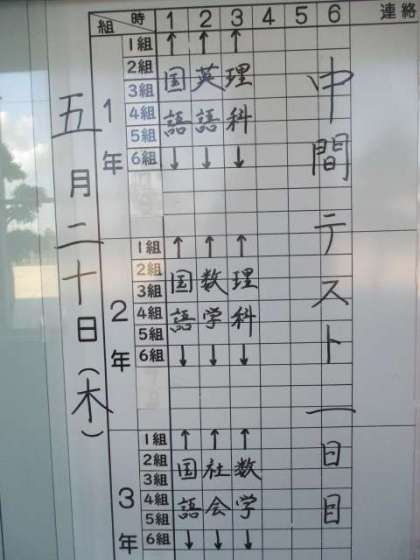 五月二十日(木)
組 時 1 2 3 4 5 6 連絡
1年
1組 ↑ ↑ ↑
2組 国語 英語 理科
3組
4組
5組
6組 ↓ ↓ ↓
2年
1組 ↑ ↑ ↑
2組 国語 数学 理科
3組
4組
5組
6組 ↓ ↓ ↓
3年
1組 ↑ ↑ ↑
2組 国語 社会 数学
3組
4組
5組
6組 ↓ ↓ ↓
中間テスト一日目